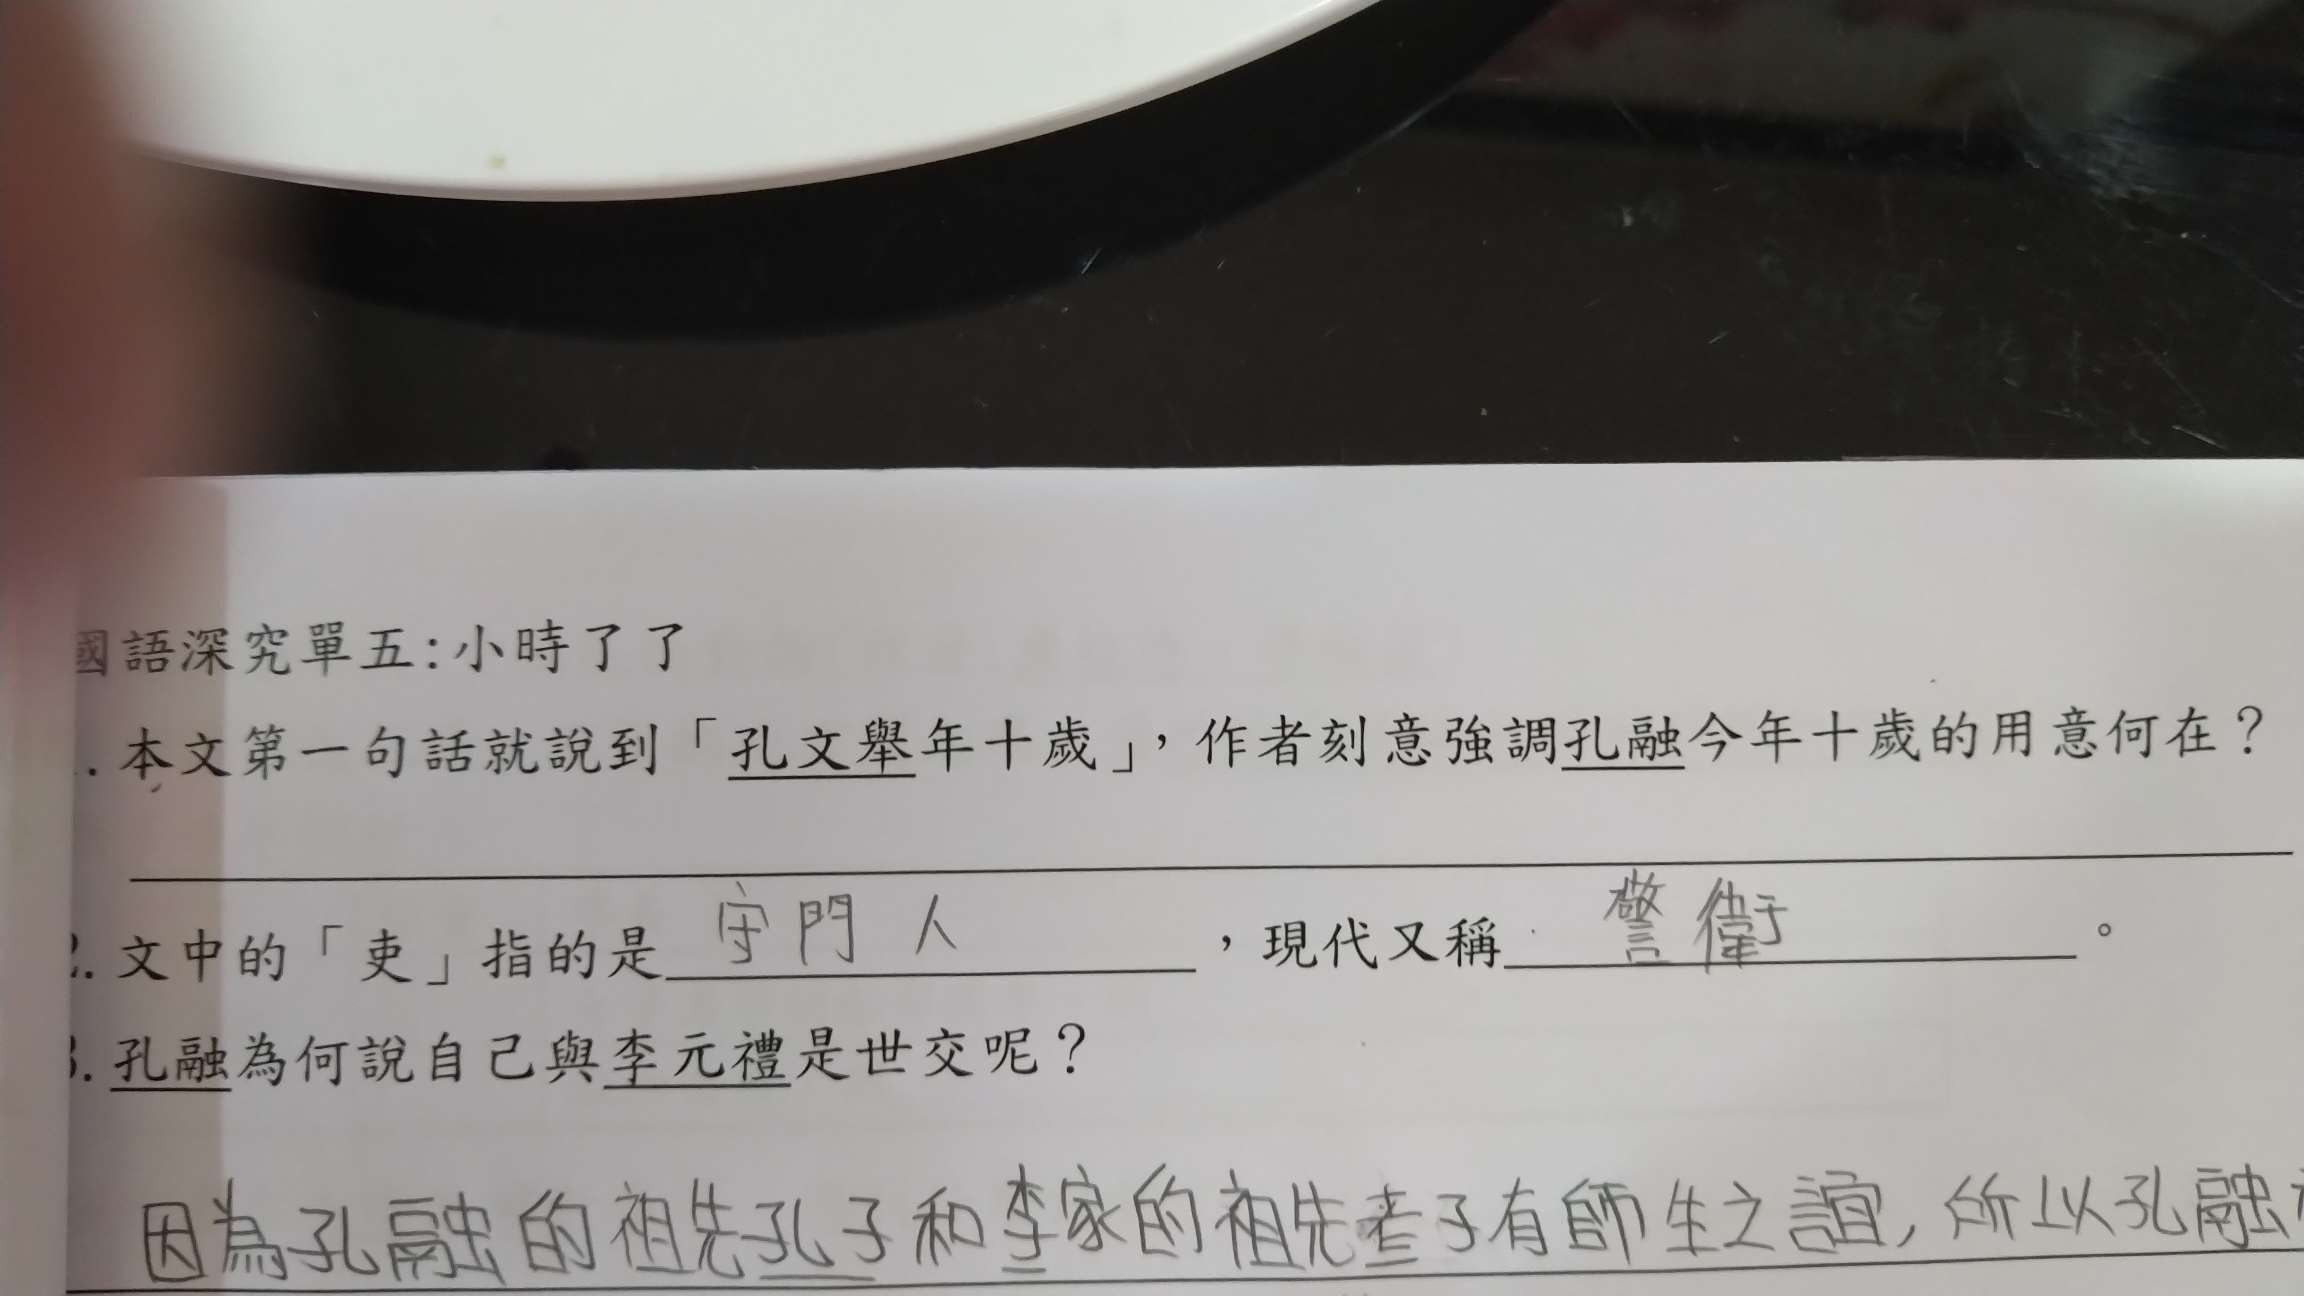 國語深究單五:小時了了
.本文第一句話就說到「孔文舉年十歲」，作者刻意強調孔融今年十歲的用意何在？
2.文中的「吏」指的是守門人，現代又稱警衛。
3.孔融為何說自己與李元禮是世交呢？
因為孔融的祖先孔子和李家的祖先老子有師生之誼，所以孔融